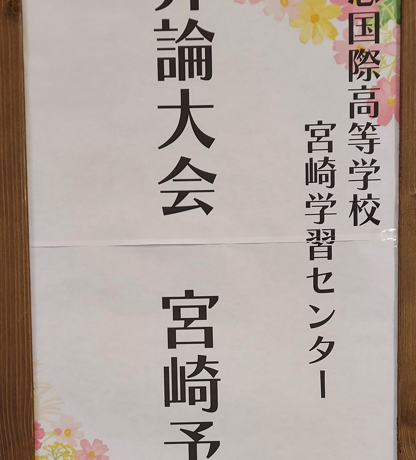 国際高等学校
宮崎学習センター
弁論大会 宮崎予